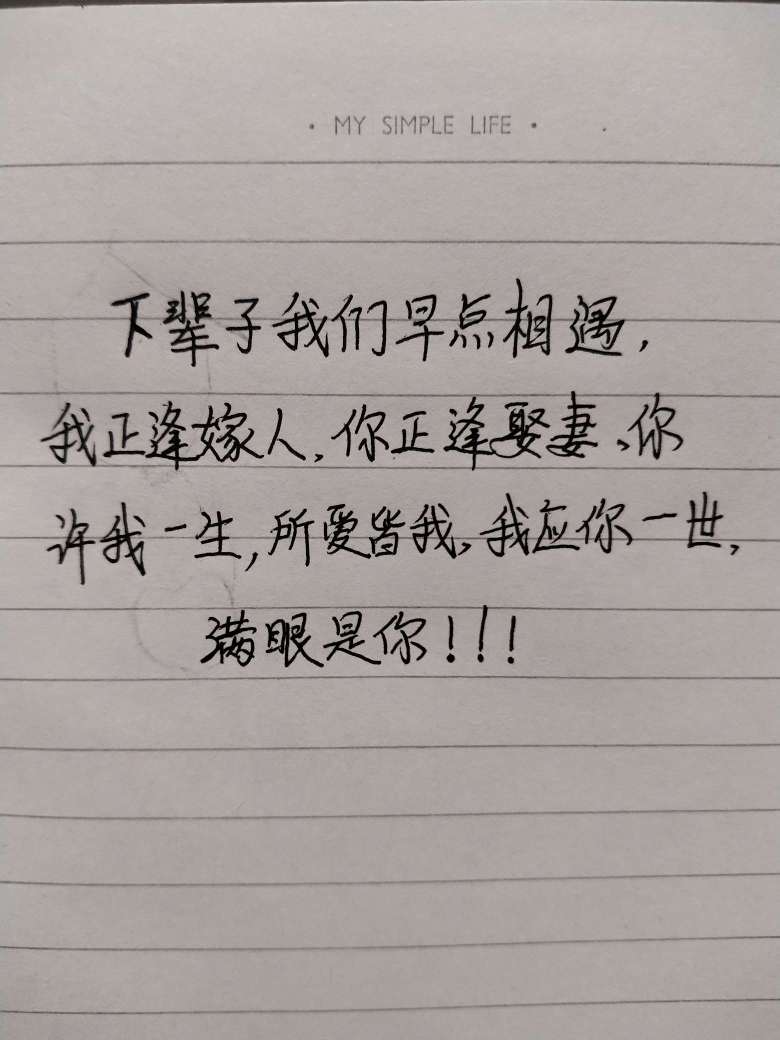 • MY SIMPLE LIFE •
下辈子我们早点相遇,
我正逢嫁人,你正逢娶妻、你
许我一生,所爱皆我。我应你一世,
满眼是你!!!